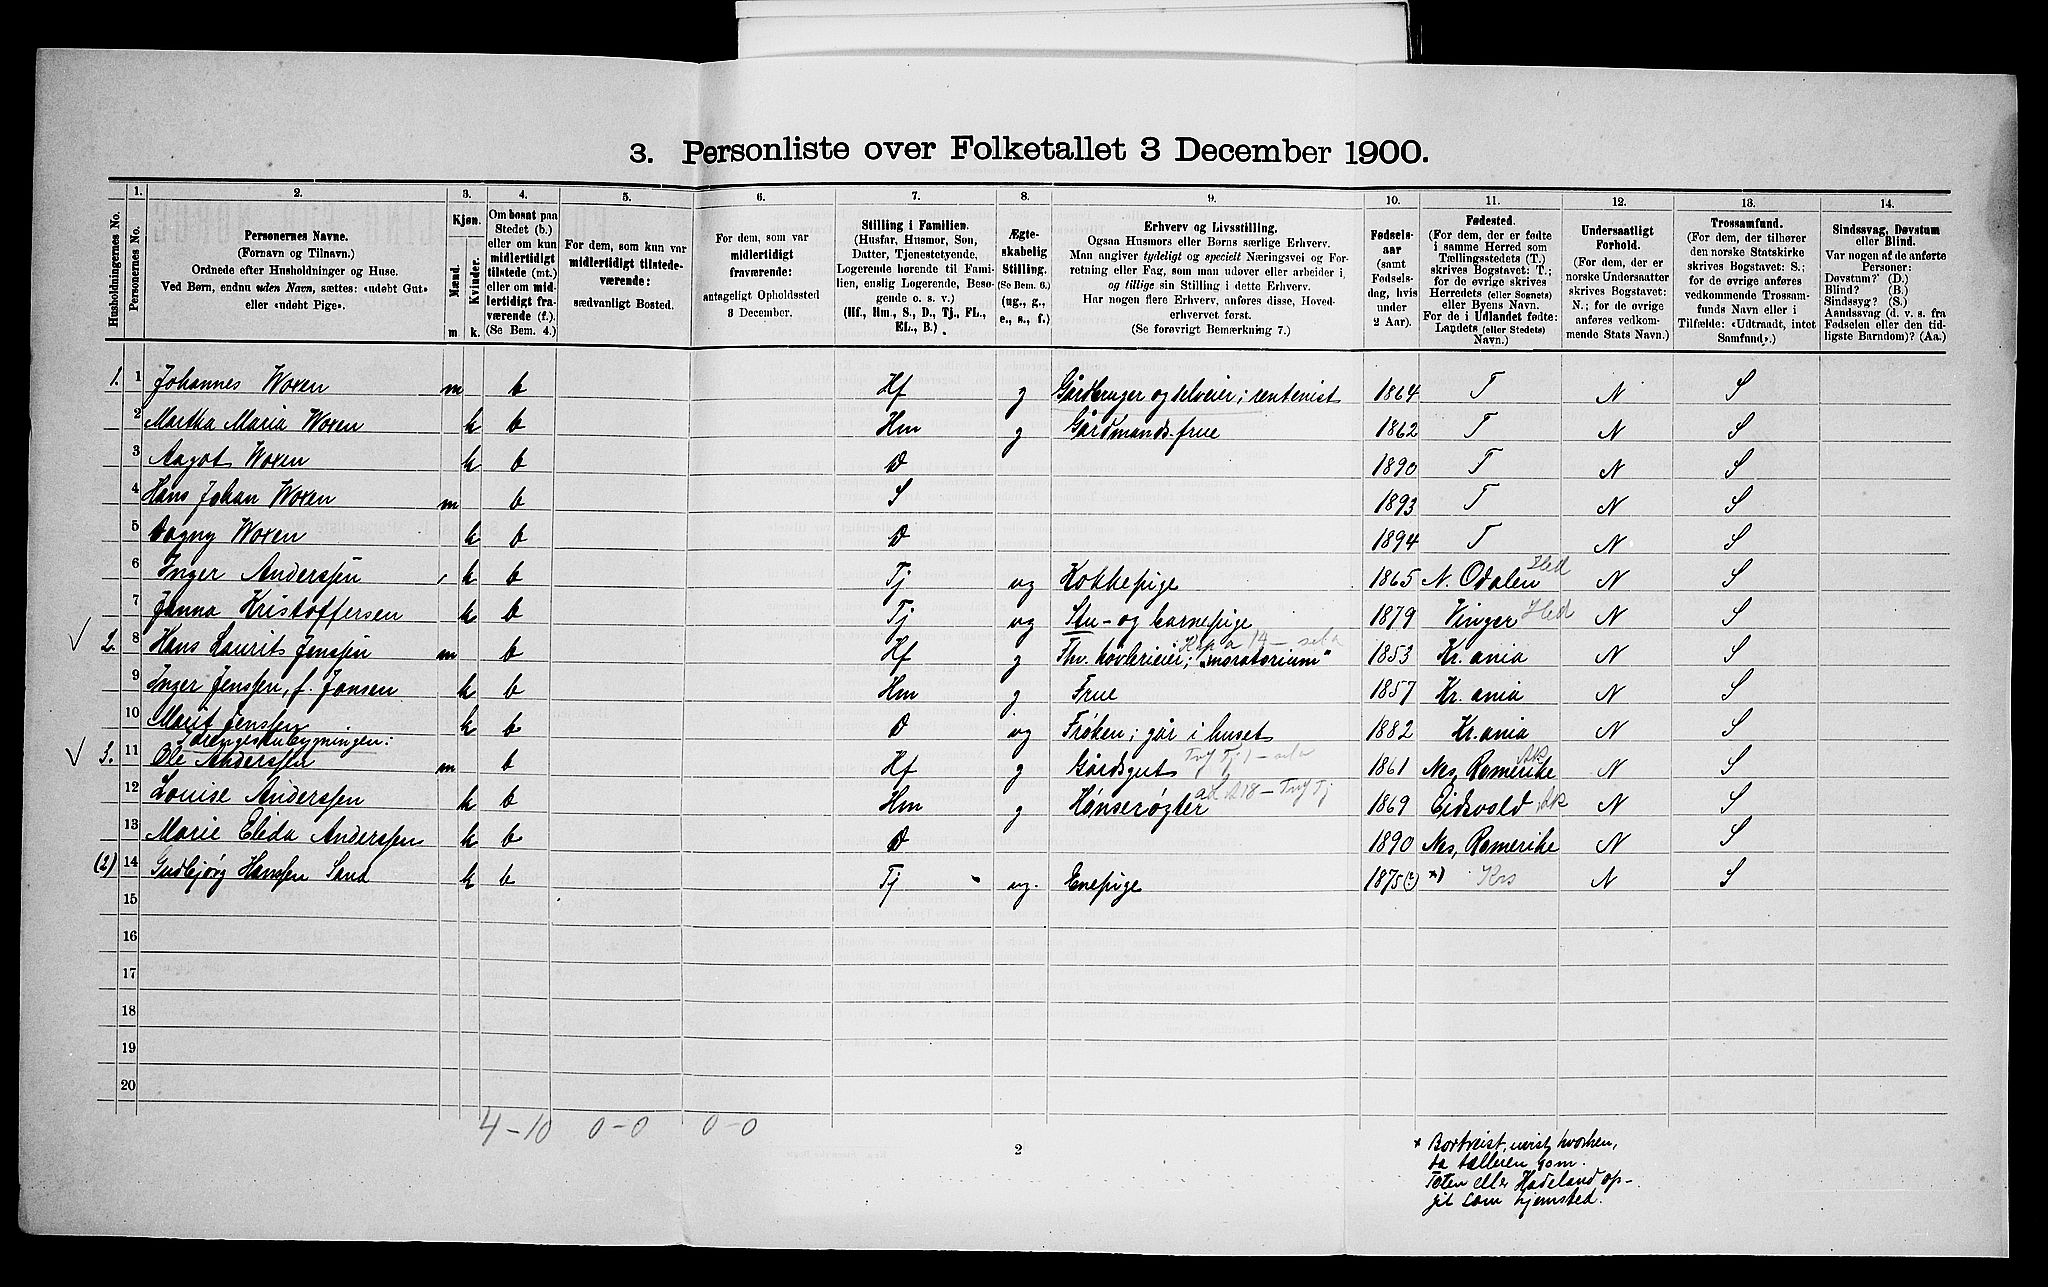 3. Personliste over Folketallet 3 December 1900.
Husholdningernes No.
1. Personernes No.
2. Personernes Navne. (Fornavn og Tilnavn.) Ordnede efter Husholdninger og Huse. Ved Børn, endnu uden Navn, sættes: «udøbt Gut» eller «udøbt Pige».
3. Kjøn. Mænd. m Kvinder. k.
4. Om bosat paa Stedet (b.) eller om kun midlertidigt tilstede (mt.) eller om midlertidigt fraværende (f.). (Se Bem. 4.)
5. For dem, som kun var midlertidigt tilstedeværende: sædvanligt Bosted.
6. For dem, som var midlertidigt fraværende: antageligt Opholdssted 3 December.
7. Stilling i Familien. (Husfar, Husmor, Søn, Datter, Tjenestetyende, Logerende hørende til Familien, enslig Logerende, Besøgende o. s. v.) (Hf., Hm., S., D., Tj., FL., EL., B.)
8. Ægteskabelig Stilling. (Se Bem. 6.) (ug., g., e., s., f.)
9. Erhverv og Livsstilling. Ogsaa Husmors eller Børns særlige Erhverv. Man angiver tydeligt og specielt Næringsvei og Forretning eller Fag, som man udøver eller arbeider i, og tillige sin Stilling i dette Erhverv. Har nogen flere Erhverv, anføres disse, Hovederhvervet først. (Se forøvrigt Bemærkning 7.)
10. Fødselsaar (samt Fødselsdag, hvis under 2 Aar).
11. Fødested. (For dem, der er fødte i samme Herred som Tællingsstedets (T.) skrives Bogstavet: T.; for de øvrige skrives Herredets (eller Sognets) eller Byens Navn. For de i Udlandet fødte: Landets (eller Stedets) Navn.)
12. Undersaatligt Forhold. (For dem, der er norske Undersaatter skrives Bogstavet: N.; for de øvrige anføres vedkommende Stats Navn.)
13. Trossamfund. (For dem, der tilhører den norske Statskirke skrives Bogstavet: S.; for de øvrige anføres vedkommende Trossamfunds Navn eller i Tilfælde: «Udtraadt, intet Samfund».)
14. Sindssvag, Døvstum eller Blind. Var nogen af de anførte Personer: Døvstum? (D.) Blind? (B.) Sindssyg? (S.) Aandssvag (d. v. s. fra Fødselen eller den tidligste Barndom)? (Aa.)
1. 1 Johannes Woxen m b Hf g Gårdbruger og selveier; rentenist 1864 T N S
2 Martha Maria Woxen k b Hm g Gårdmandsfrue 1862 T N S
3 Aagot Woxen k b D 1890 T N S
4 Hans Johan Woxen m b S 1893 T N S
5 Dagny Woxen k b D 1894 T N S
6 Inger Anderssen k b Tj ug Kokkepige 1865 N. Odalen Hed N S
7 Janna Kristoffersen k b Tj ug Stu- og barnepige 1879 Vinger Hed N S
√ 2. 8 Hans Laurits Jenssen m b Hf g Fhv. høvlerieier; "moratorium" 1853 Kr.ania N S
9 Inger Jenssen, f. Jansen k b Hm g Frue 1857 Kr.ania N S
10 Marit Jenssen k b D ug Frøken; går i huset 1882 Kr.ania N S
I drengestubygningen:
√ 3. 11 Ole Anderssen m b Hf g Gårdsgut 1861 Nes, Romerike Ak N S
12 Louise Anderssen k b Hm g Hønserøgter 1869 Eidsvold Ak N S
13 Marie Elida Anderssen k b D 1890 Nes, Romerike N S
(2) 14 Gudbjørg Hanssen Sand k b Tj ug. Enepige 1875(?) *) Krs N S
15
16
17
18
19
20
4-10 0-0 0-0
2
* Bortreist, uvist hvorhen,
da tælleren kom.
Toten eller Hadeland op-
git som hjemsted.